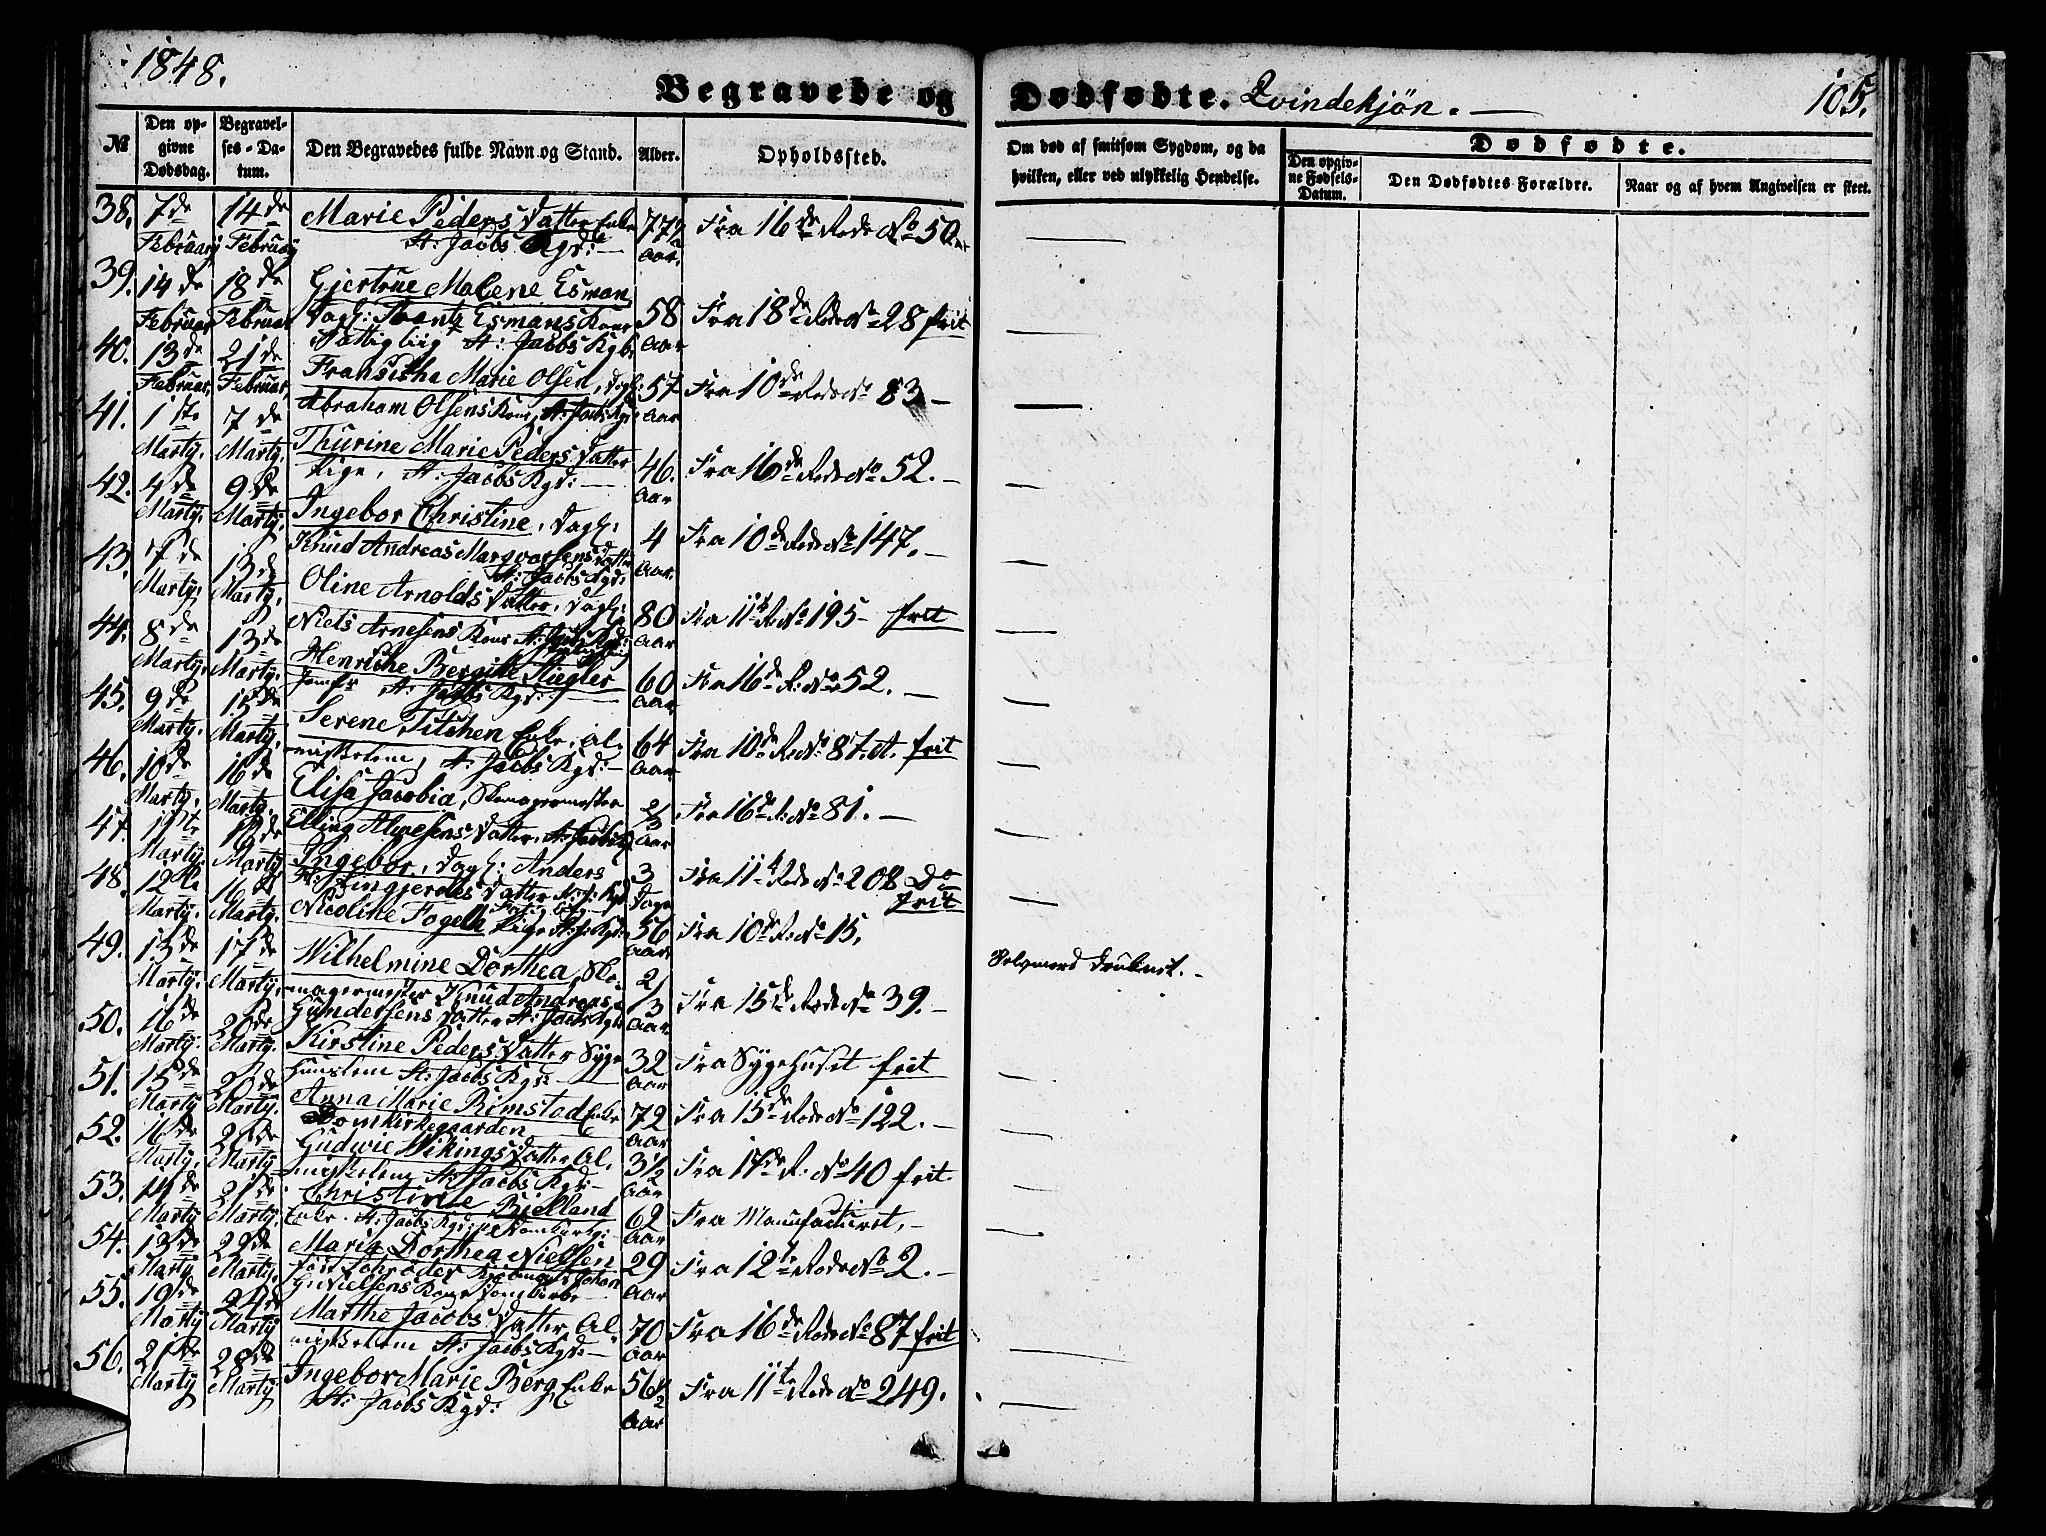 1848.
Begravede og Dødfødte. Qvindekjøn. —
105.
№
Den opgivne Dødsdag.
Begravelses-Datum.
Den Begravedes fulde Navn og Stand.
Alder.
Opholdssted.
Om død af smitsom Sygdom, og da
hvilken, eller ved ulykkelig Hendelse.
Dødfødte.
Den opgivne Fødsels-Datum.
Den Dødfødtes Forældre.
Naar og af hvem Angivelsen er skeet.
38. 7de 14de Marie Peders Datter Enke 77½ Fra 16de Rode No 50.
Februar Februar St: Jacobs Kgd: — Aar.
39. 14de 18de Gjertrue Malene Esman,
Februar Februar Dagl: Esmans Kone 58 Fra 18de Rode No 28 frit
Fattiglig St: Jacobs Kgd. Aar
40. 13de 21de Fransiska Marie Olsen, Dagl: 57 Fra 10de Rode No 83 —
Februar. Februar. Abraham Olsens Kone, St: Jacobs Kgd. Aar
41. 1ste 7de Thurine Marie Peders Datter 46. Fra 16de Rode No 52. —
Martz. Martz. Pige, St: Jacobs Kgd: — Aar
42. 4de 9de Ingebor Christine, Dagl: 4 Fra 10de Rode No 147. —
Martz. Martz. Knud Andreas Marqvorsens Datter
St: Jacobs Kgd: Aar.
43. 7de 13de Oline Arnolds Datter, Dagl: 80 Fra 11te R. No 195 — frit
Martz. Martz. Niels Arnesens Kone St: Jacobs Kgd: Aar
44. 8de 13de Henriche Bergitte Stiegler 60 Fra 16de R: No 52. —
Martz. Martz. Jomfr St: Jacobs Kgd: — Aar
45. 9de 15de Serene Titchen Enke, Al- 64 Fra 10de R. No 87.A. frit
Martz. Martz. misselem, St: Jacobs Kgd: — Aar
46. 10de 16de Elisa Jacobia, Skomagermester 2/3 Fra 16de R: No 81. —
Martz. Martz. Elling Datter, St: Jacobs Kgd Aar
47. 11te 18de Ingebor, Dagl: Anders 3 Fra 11te Rode No 208 Do
Martz. Martz. Datter St: J: Kgd Dage frit
48. 12te 16de Nicoline Fogell, Pige St: J: Kgd: 56 Fra 10de R: No 15.
Martz. Martz. Aar
49. 13de 17de Wilhelmine Dorthea, Sko- 2/3 Fra 15de Rode No 39. — Selvmord druknet. —
Martz. Martz. magermester Knud Andreas
Gundersens Datter St: Jacobs Kgd Aar
50. 16de 20de Kirstine Peders Datter Syge 32 Fra Sygehuset frit
Martz. Martz. huuslem St: Jacobs Kgd: — Aar
51. 15de 20de Anna Marie Rimstad Enke 72 Fra 15de Rode No 122. —
Martz Martz. Domkirkegaarden Aar
52. 16de 20de Gudwie Wikings Datter Al- 31/2 Fra 17de R: No 40 frit.
Martz. Martz. misselem St: Jacobs Kgd: — Aar
53. 14de 21de Christine Bielland 62 Fra Manufacturet. —
Martz Martz. Enke. St: Jacobs Kgd: Aar
54. 13de 22de Maria Dorthea Nielsen 29 Fra 12te Rode No 2. —
Martz Martz. født Schrøder Kjøbmand Johan
G: Nielsens Kone Aar
55. 19de 24de Marthe Jacobs Datter Al- 70 Fra 16de Rode No 87 frit
Martz Martz misselem St: Jacobs Kgd: — Aar
56. 21de 28de Ingebor Marie Berg Enke 56½ Fra 11te Rode No 249.
Martz Martz St: Jacobs Kgd: Aar